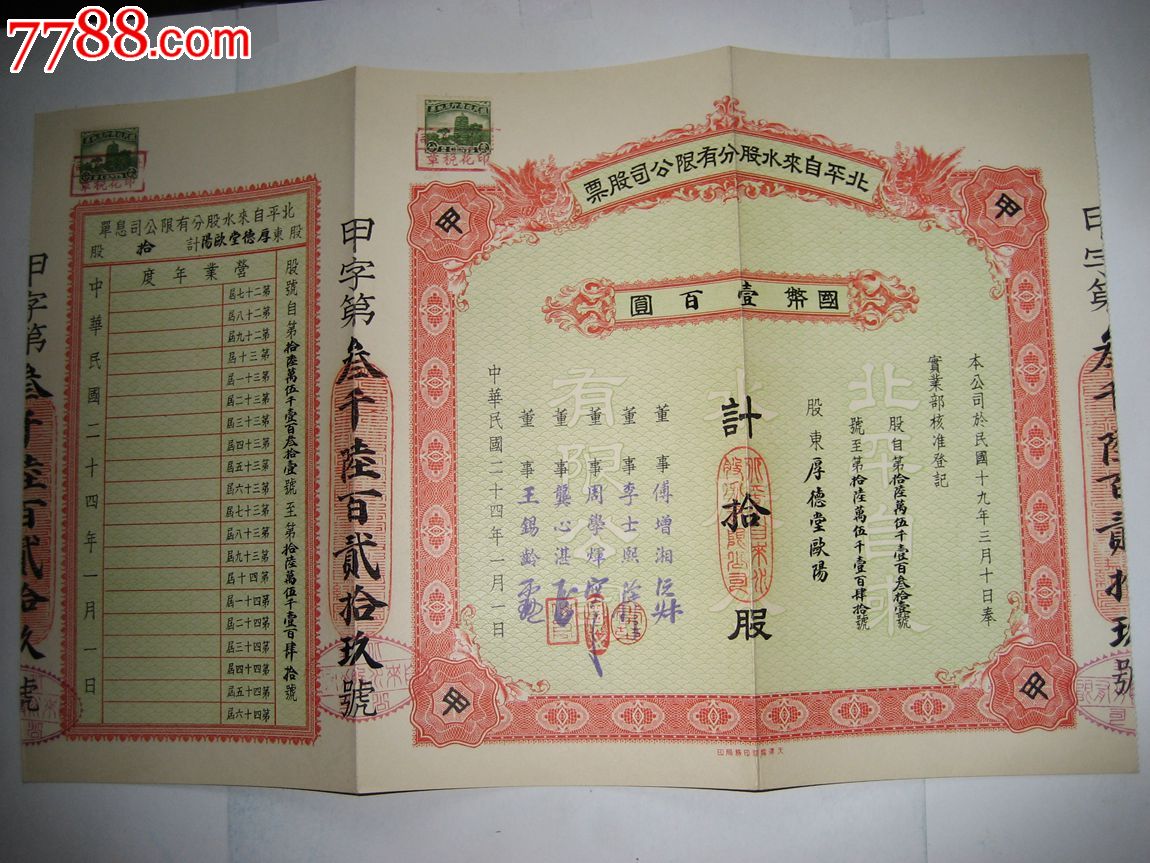 7788.com
北平自來水股分有限公司股票
國幣壹百圓
甲
甲
甲
甲
本公司於民國十九年三月十日奉
實業部核准登記
股自第拾陸萬伍千壹百叁拾壹號
號至第拾陸萬伍千壹百肆拾號
股東厚德堂歐陽
計拾股
北平自來水
有限公
董事傅增湘
董事李士熙
董事周學煇
董事龔心湛
董事王錫齡
中華民國二十四年一月一日
甲字第叁千陸百貳拾玖號
甲字第叁千陸百貳拾玖號
甲字第叁千陸百貳拾玖號
印花稅章
印花稅章
北平自來水股分有限公司息單
股東厚德堂歐陽計拾股
股號自第拾陸萬伍千壹百叁拾壹號至第拾陸萬伍千壹百肆拾號
營業年度
第二十七屆
第二十八屆
第二十九屆
第三十屆
第三十一屆
第三十二屆
第三十三屆
第三十四屆
第三十五屆
第三十六屆
第三十七屆
第三十八屆
第三十九屆
第四十屆
第四十一屆
第四十二屆
第四十三屆
第四十四屆
第四十五屆
第四十六屆
中華民國二十四年一月一日